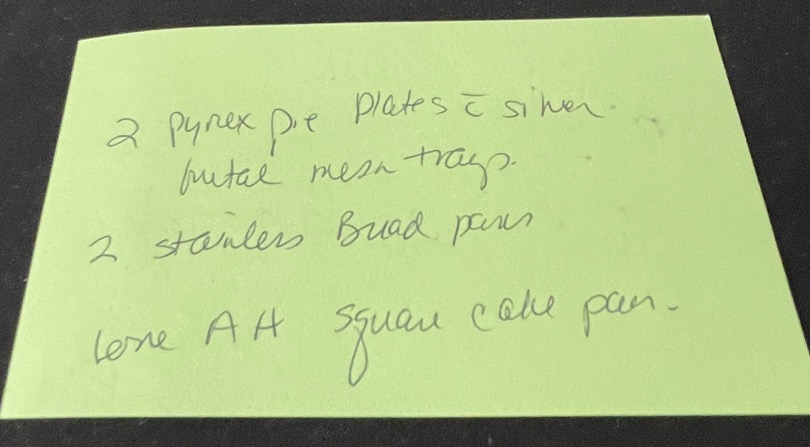 2 pyrex pie plates c̄ silver
metal mesh trays.
2 stainless Bread pans
AH square cake pan.